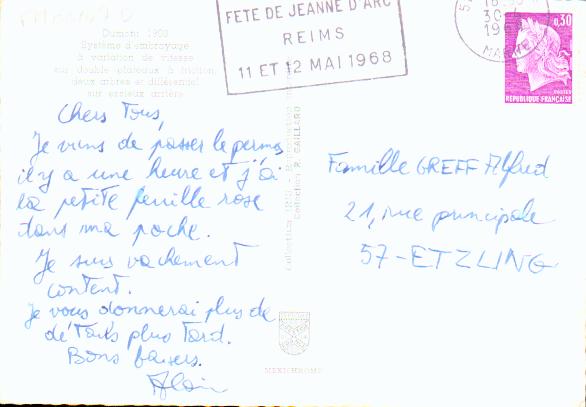 FETE DE JEANNE D'ARC
REIMS
11 ET 12 MAI 1968
0,30
POSTES
REPUBLIQUE FRANÇAISE
Dumont 1908
Système d'embrayage
à variation de vitesse
sur double plateaux à friction
deux arbres et différentiel
sur essieux arrière
Chers Tous,
Je viens de passer le permis
il y a une heure et j'ai
la petite feuille rose
dans ma poche.
Je suis vachement
content.
Je vous donnerai plus de
détails plus tard.
Bons baisers.
Alain
Collection R. GAILLARD
Famille GREFF Alfred
21, rue principale
57-ETZLING
MEXICHROME